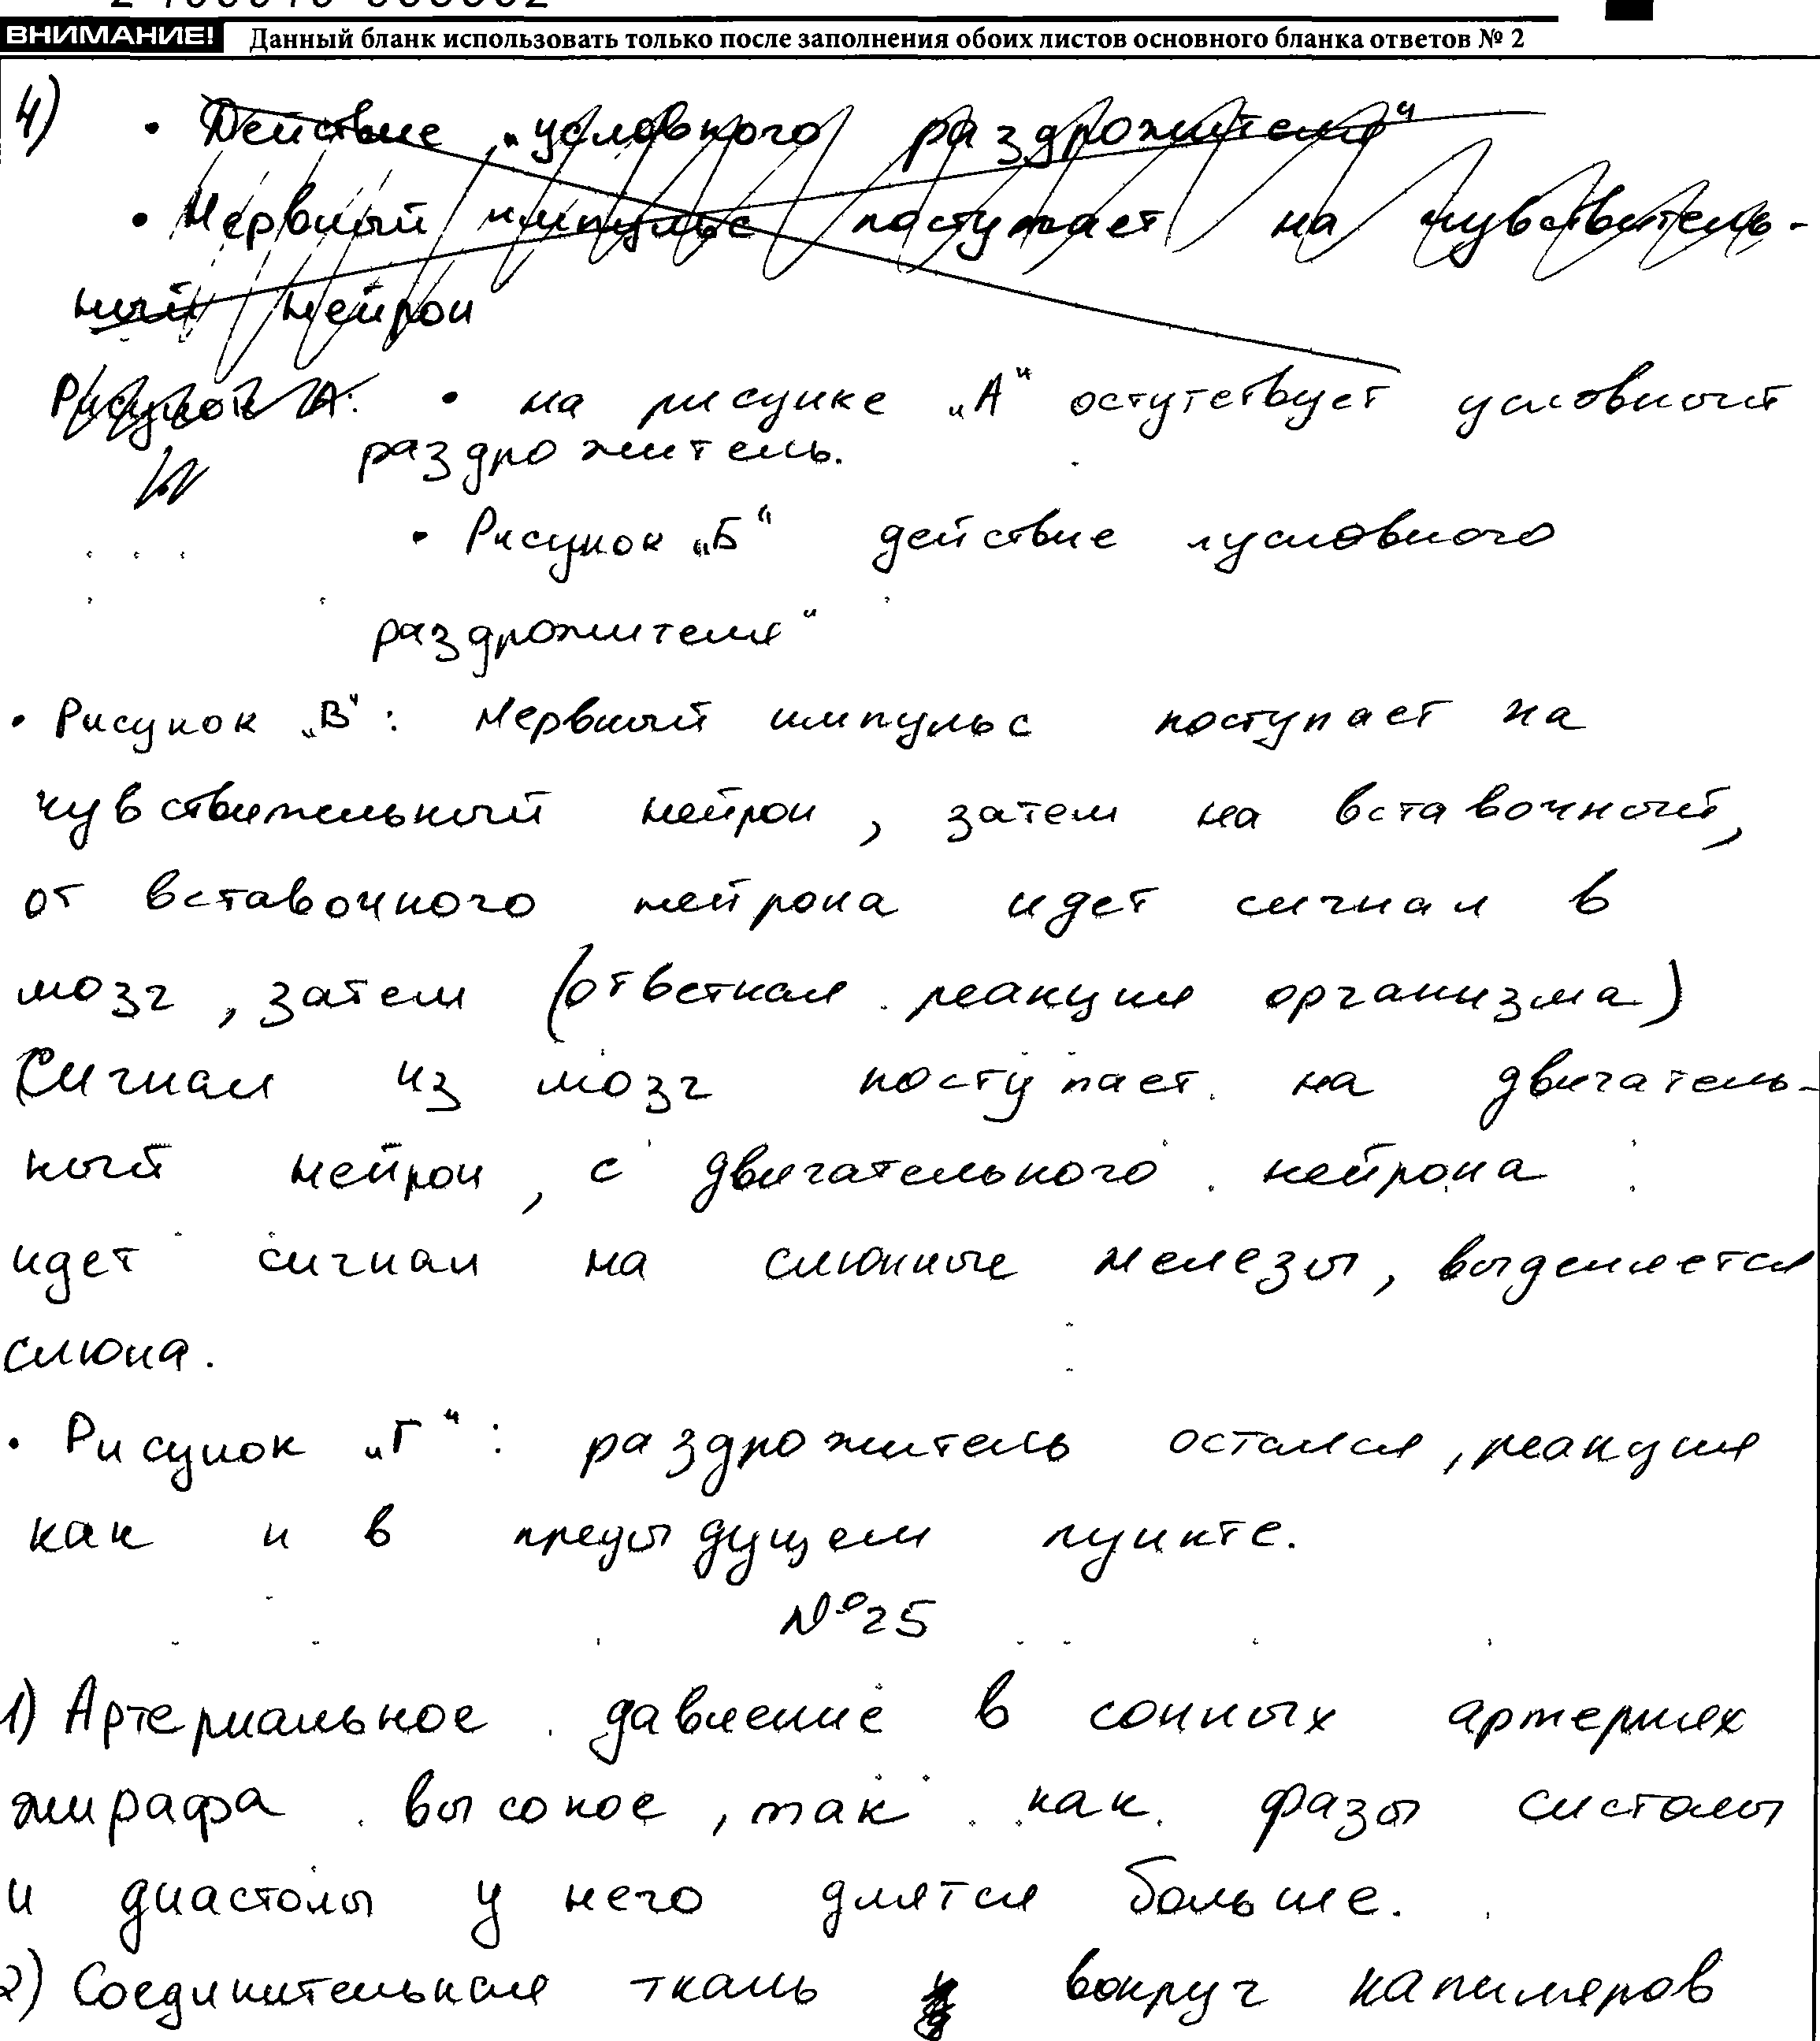 ВНИМАНИЕ! Данный бланк использовать только после заполнения обоих листов основного бланка ответов № 2
4) • Действие „условного раздрожителя“
• Нервный импульс поступает на чувствитель-
ный нейрон
Рисунок А: • на рисунке „А“ остутствует условный
раздрожитель.
• Рисунок „Б“ действие „условного
раздрожителя“
• Рисунок „В“: Нервный импульс поступает на
чувствительный нейрон, затем на вставочный,
от вставочного нейрона идет сигнал в
мозг, затем (ответная реакция организма)
Сигнал из мозг поступает на двигатель-
ный нейрон, с двигательного нейрона
идет сигнал на слюнные железы, выделяется
слюна.
• Рисунок „Г“: раздрожитель остался, реакция
как и в предыдущем пункте.
№25
1) Артериальное давление в сонных артериях
жирафа высокое, так как фазы систолы
и диастолы у него длятся больше.
2) Соединительная ткань вокруг капиляров